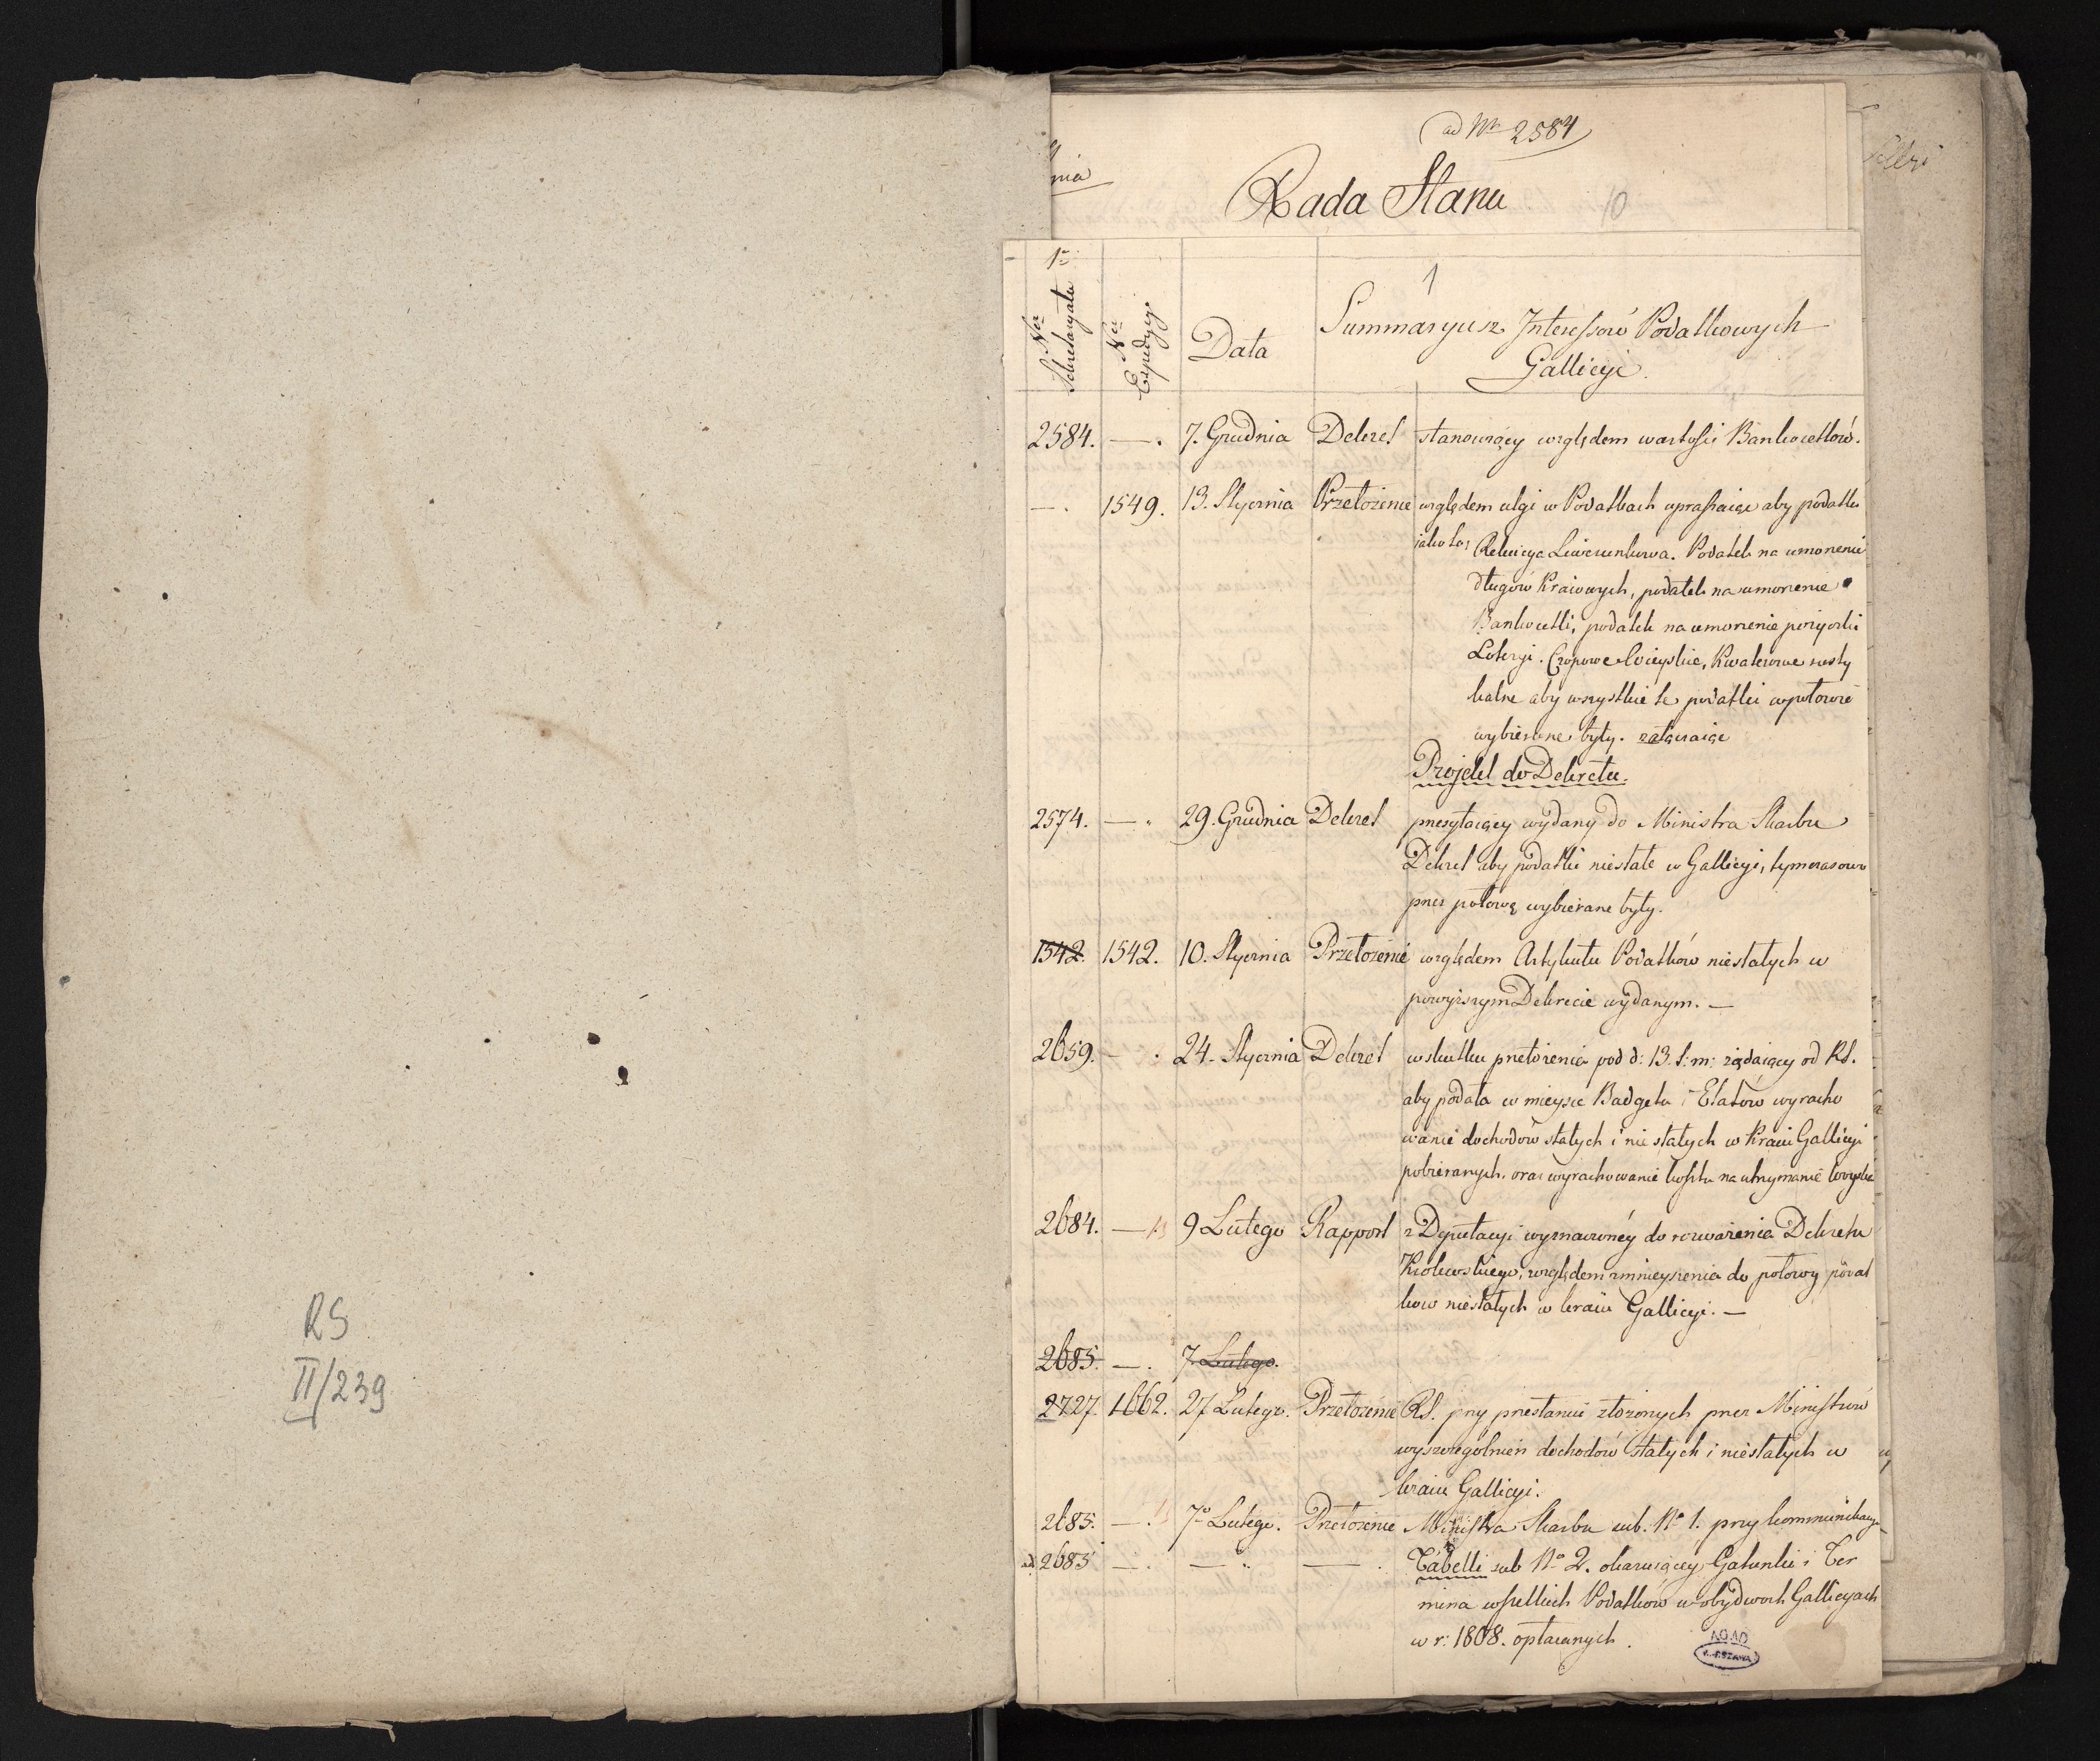 RS
II/239
ad Nr 2584
nia
Rada Stanu
10
1o
1
Ner Sekretaryatu
Ner Expedycyi
Data
Summaryusz Interessów Podatkowych
Gallicyi.
2584. — . 7. Grudnia Dekret stanowiący względem wartości Bankocetlów.
— . 1549. 13. Stycznia Przełożenie względem ulgi w Podatkach upraszaiąc aby podatki
iako to; Rekwizycya Liwerunkowa. Podatek na umorzenie
długów Kraiowych, podatek na umorzenie
Bankocetli, podatek na umorzenie pożyczki
Loteryi. Czopowe Wieyskie, Kwaterowe rusty
kalne aby wszystkie te podatki w połowie
wybierane były. załączaiąc
Projekt do Dekretu.
2574. — . 29. Grudnia Dekret przesyłaiący wydany do Ministra Skarbu
Dekret aby podatki niestałe w Gallicyi, tymczasowo
przez połowę wybierane były.
1542. 1542. 10. Stycznia Przełożenie względem Artykułu Podatków niestałych w
powyższym Dekrecie wydanym. —
2659. — . 24. Stycznia Dekret w skutku przełożenia pod d: 13. t: m: żądaiący od RS.
aby podała w mieysce Badgetu i Etatów wyracho
wanie dochodów stałych i nie stałych w Kraiu Gallicyi
pobieranych. oraz wyrachowanie kosztu na utrzymanie Woyska
2684. — 9 Lutego Rapport z Deputacyi wyznaczonéy do rozważenia Dekretu
Krolewskiego, względem zmnieyszenia do połowy podat
kow niestałych w kraiu Gallicyi. —
2685. — . 7. Lutego.
2727. 1662. 27 Lutego. Przełożenie RS. przy przesłaniu złożonych przez Ministrów
wyszczegolnień dochodów stałych i niestałych w
kraiu Gallicyi.
2685. — . 7o Lutego. Przełożenie Ministra Skarbu sub. No 1. przy kommunikacyi
ad 2685 — . — " — . Tabelli sub No 2. okazuiącey Gatunki i Ter
mina wszelkich Podatków w obydwoch Gallicyach
w r: 1808. opłacanych.
AGAD
WARSZAWA